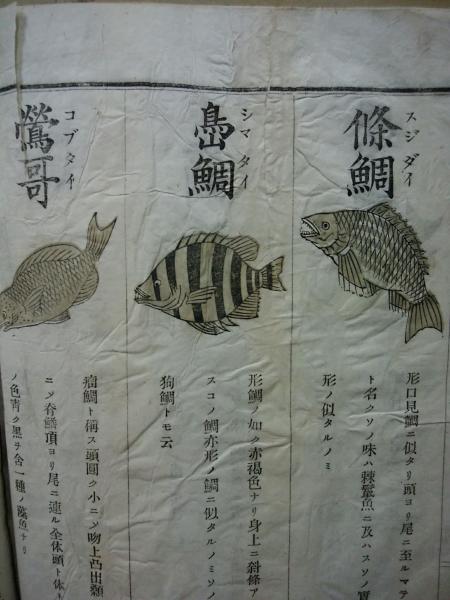 條鯛
スジダイ
形口見鯛ニ似タリ頭ヨリ尾ニ至ルマテ
ト名クソノ味ハ棘鬣魚ニ及ハスソノ實
形ノ似タルノミ
嶋鯛
シマタイ
形鯛ノ如ク赤褐色ナリ身上ニ斜條ア
スコノ鯛亦形ノ鯛ニ似タルノミソノ
狗鯛トモ云
鶯哥
コブタイ
瘤鯛ト稱ス頭圓ク小ニソ吻上凸出類
ニソ脊鱗頂ヨリ尾ニ連ル全体頭ト体ト
ノ色青ク黒ヲ含一種ノ魚ナリ